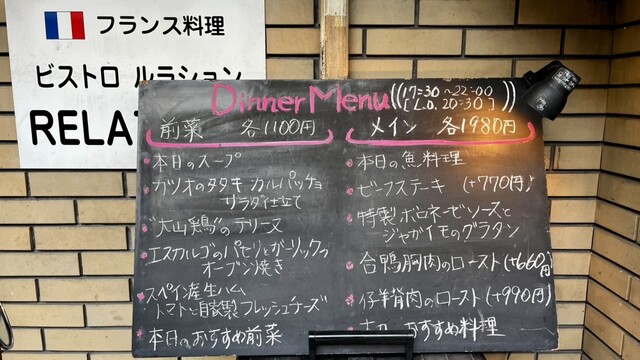 フランス料理
ビストロ ルラション
RELA
Dinner Menu ((17:30~22:00
[L.O. 20:30]))
前菜 各1100円
本日のスープ
カツオのタタキ カルパッチョ
サラダ仕立て
"大山鶏"のテリーヌ
エスカルゴのパセリとガーリックの
オーブン焼き
スペイン産生ハム
トマトと自家製フレッシュチーズ
本日のおすすめ前菜
メイン 各1980円
本日の魚料理
ビーフステーキ (+770円)
特製ボロネーゼソースと
ジャガイモのグラタン
合鴨胸肉のロースト (+660円)
仔羊背肉のロースト (+990円)
おすすめ料理